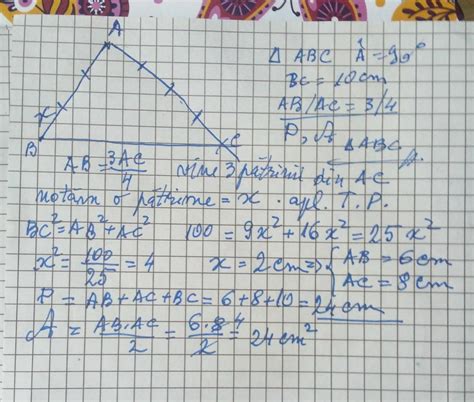 A
Δ ABC Â = 90°
BC = 10 cm
AB/AC = 3/4
P, A
Δ ABC
x
B
C
AB = 3AC/4 vine 3 pătrimi din AC
notăm o pătrime = x . apl. T. P.
BC² = AB² + AC² 100 = 9x² + 16x² = 25x²
x² = 100/25 = 4 x = 2 cm ⇒ { AB = 6 cm
AC = 8 cm
P = AB + AC + BC = 6 + 8 + 10 = 24 cm
A = AB·AC/2 = 6·8/2 4 = 24 cm²